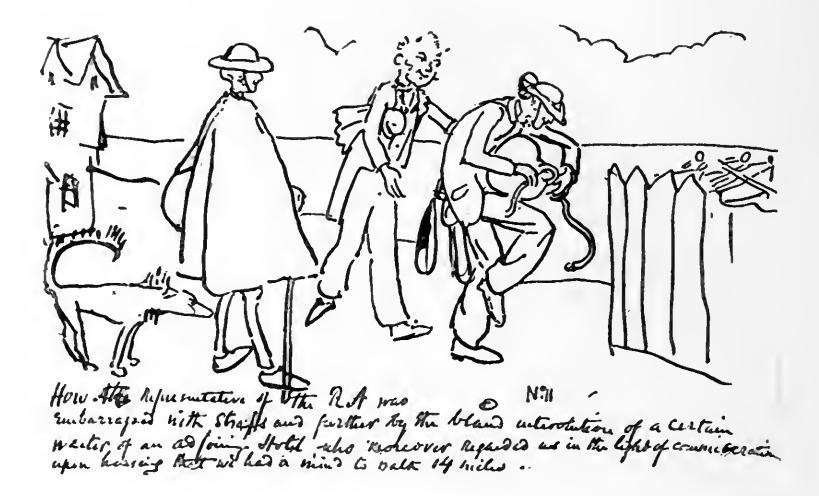 Nº 11
How the Representative of the R.A was
Embarrassed with Straps and further by the bland of a certain
waiter of an adjoining Hotel who moreover regarded us in the light of
upon hearing that we had a mind to walk 14 miles ..